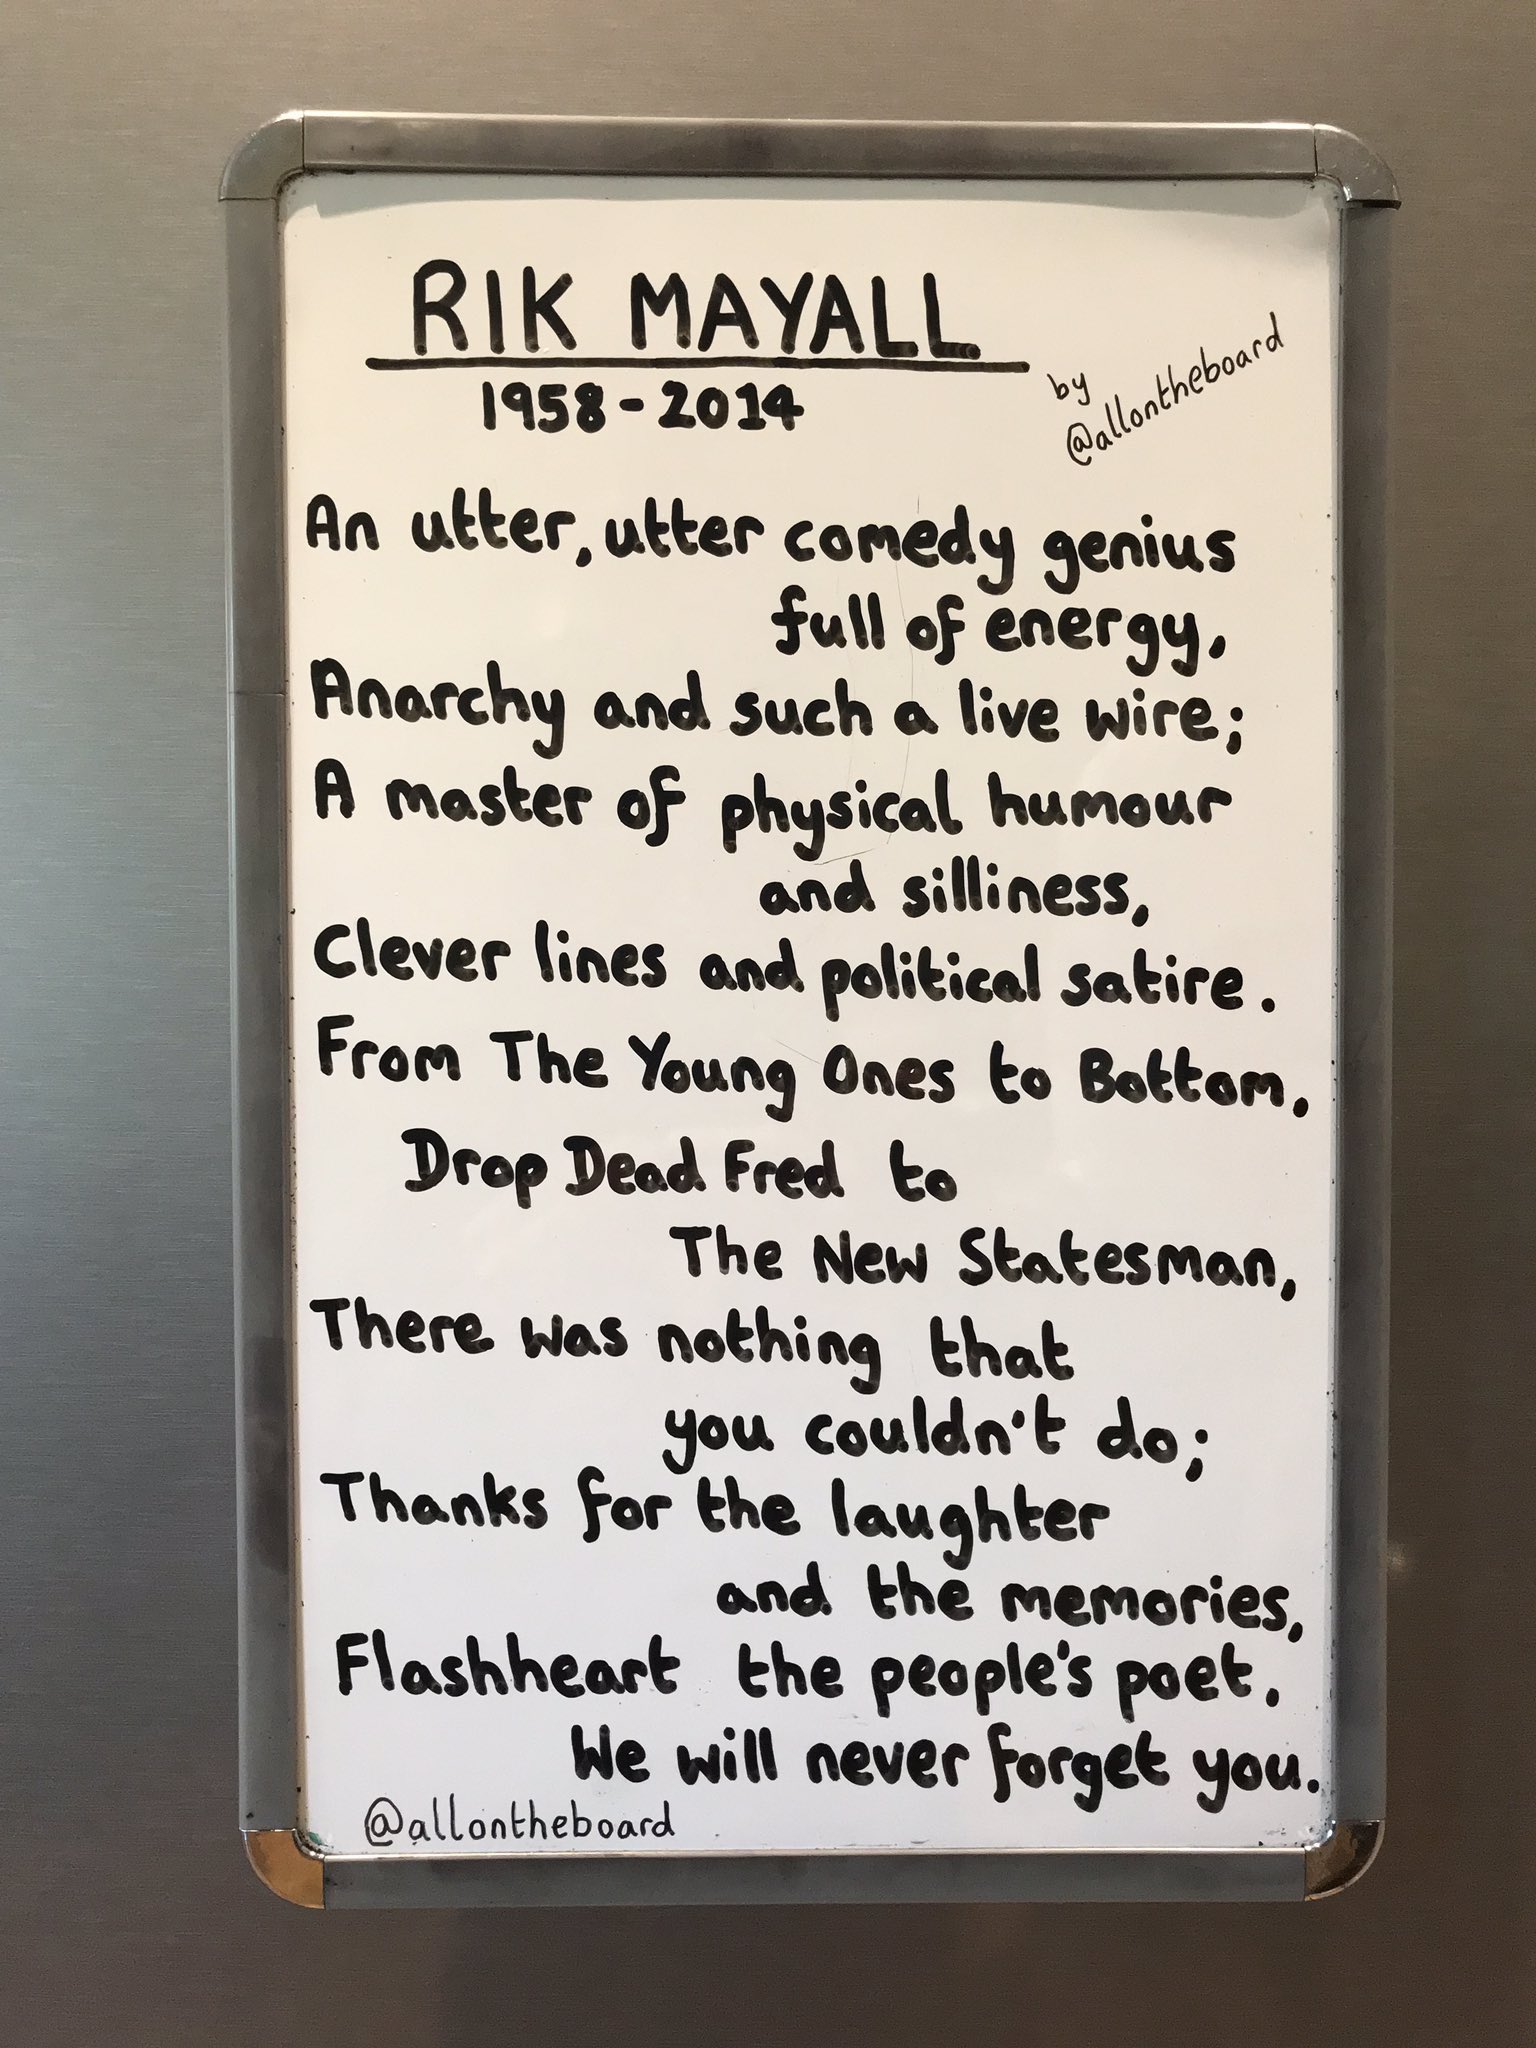 RIK MAYALL
1958-2014
by
@allontheboard
An utter, utter comedy genius
full of energy,
Anarchy and such a live wire;
A master of physical humour
and silliness,
Clever lines and political satire.
From The Young Ones to Bottom,
Drop Dead Fred to
The New Statesman,
There was nothing that
you couldn't do;
Thanks for the laughter
and the memories,
Flashheart the people's poet,
We will never forget you.
@allontheboard